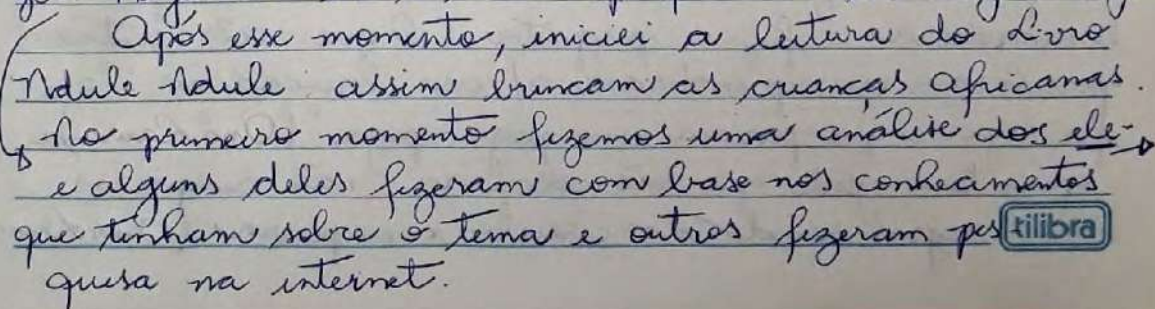 Após esse momento, iniciei a leitura do Livro
Ndule Ndule assim brincam as crianças africanas.
No primeiro momento fizemos uma análise dos ele-
e alguns deles fizeram com base nos conhecimentos
que tinham sobre o tema e outros fizeram pes
tilibra
quisa na internet.